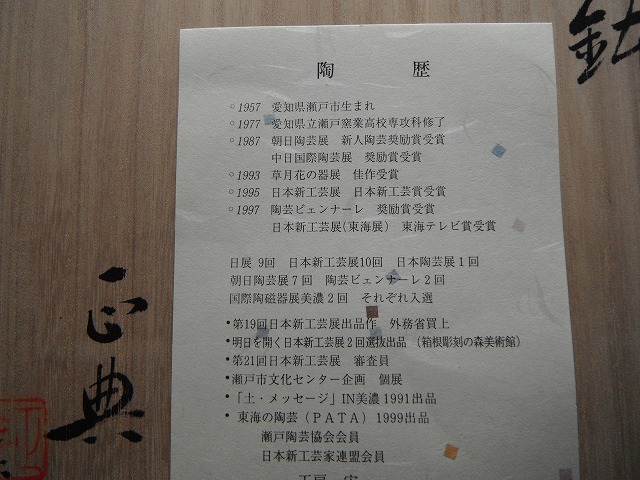 陶 歴
○1957 愛知県瀬戸市生まれ
○1977 愛知県立瀬戸窯業高校専攻科修了
○1987 朝日陶芸展 新人陶芸奨励賞受賞
中日国際陶芸展 奨励賞受賞
○1993 草月花の器展 佳作受賞
○1995 日本新工芸展 日本新工芸賞受賞
○1997 陶芸ビェンナーレ 奨励賞受賞
日本新工芸展(東海展) 東海テレビ賞受賞
日展 9回 日本新工芸展10回 日本陶芸展1回
朝日陶芸展7回 陶芸ビェンナーレ2回
国際陶磁器展美濃2回 それぞれ入選
•第19回日本新工芸展出品作 外務省買上
•明日を開く日本新工芸展2回選抜出品 (箱根彫刻の森美術館)
•第21回日本新工芸展 審査員
•瀬戸市文化センター企画 個展
•「土・メッセージ」IN美濃1991出品
•東海の陶芸(PATA)1999出品
瀬戸陶芸協会会員
日本新工芸家連盟会員
正典
鉢